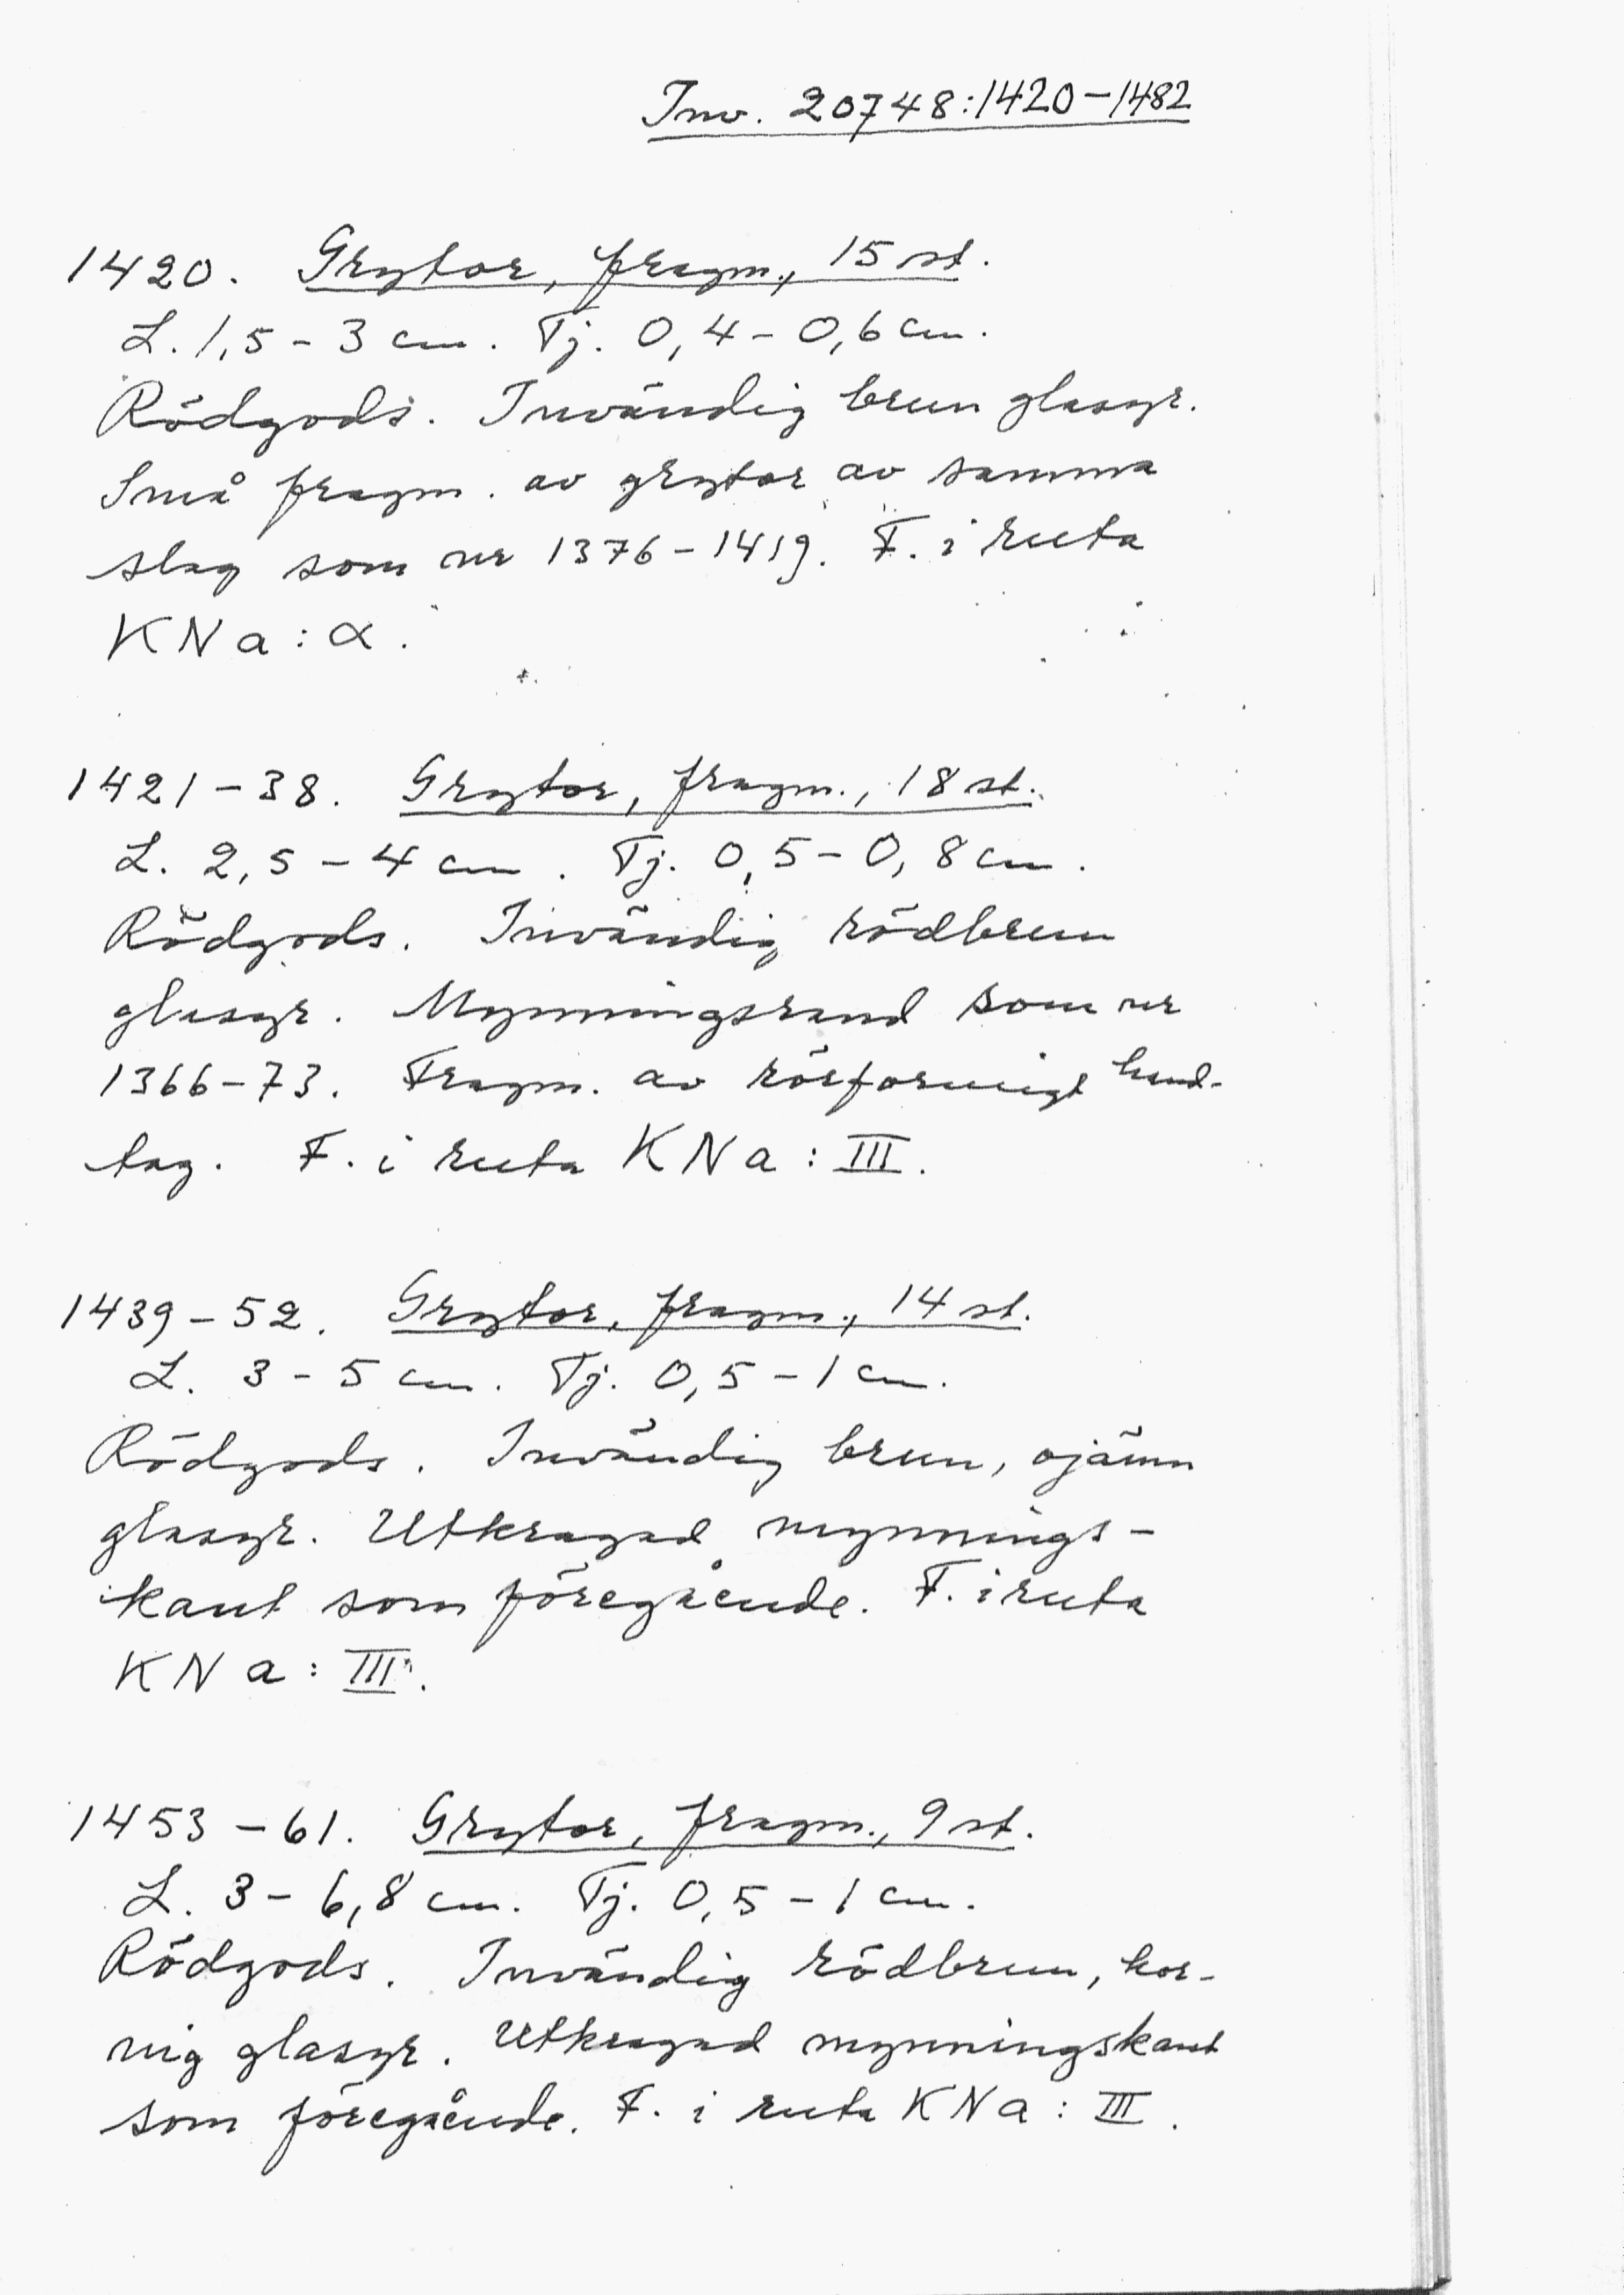 Inv. 20748:1420-1482
1420. Grytor, fragm., 15 st.
L. 1,5 - 3 cm. Tj. 0,4 - 0,6 cm.
Rödgods. Invändig brun glasyr.
Små fragm. av grytor av samma
slag som nr 1376-1419. F. i ruta
KNa: α.
1421-38. Grytor, fragm., 18 st.
L. 2,5 - 4 cm. Tj. 0,5 - 0,8 cm.
Rödgods. Invändig rödbrun
glasyr. Mynningsrand som nr
1366-73. Fragm. av rörformigt hand-
tag. F. i ruta KNa: III.
1439-52. Grytor, fragm., 14 st.
L. 3 - 5 cm. Tj. 0,5 - 1 cm.
Rödgods. Invändig brun, ojämn
glasyr. Utkragad mynnings-
kant som föregående. F. i ruta
KNa: III.
1453-61. Grytor, fragm., 9 st.
L. 3 - 6,8 cm. Tj. 0,5 - 1 cm.
Rödgods. Invändig rödbrun, kor-
nig glasyr. Utkragad mynningskant
som föregående. F. i ruta KNa: III.